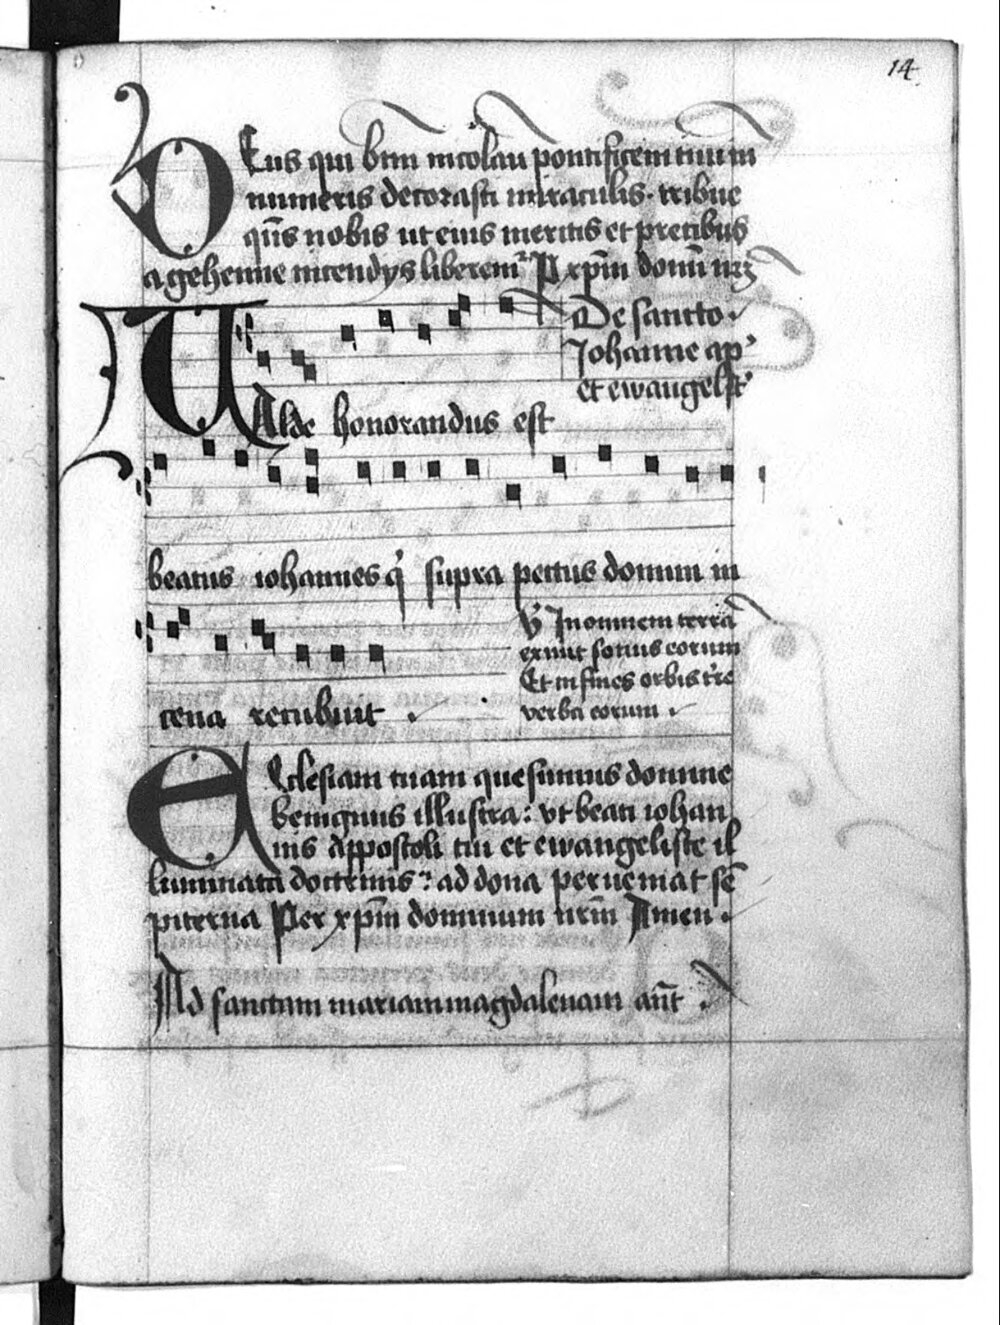 14
Deus qui btm nicolau pontificem tuum
numeris decorasti miraculis· tribue
qus nobis ut eius meritis et precibus
a gehenne incendys liberem² P xpm domi nrz
De sancto
Johanne ap'
et ewangelist'
VAlde honorandus est
beatus iohannes q supra pectus domini in
cena recubuit .
V Jn omnem terra
exiuit sonus eorum
Et in fines orbis tre
verba eorum
ECclesiam tuam quesumus domine
benignus illustra : vt beati iohan
nis Appostoli tui et ewangeliste il
luminata doctrinis : ad dona perueniat se
piterna Per xpm dominum nrm Amen .
Ad sanctam mariam magdalenam ant .